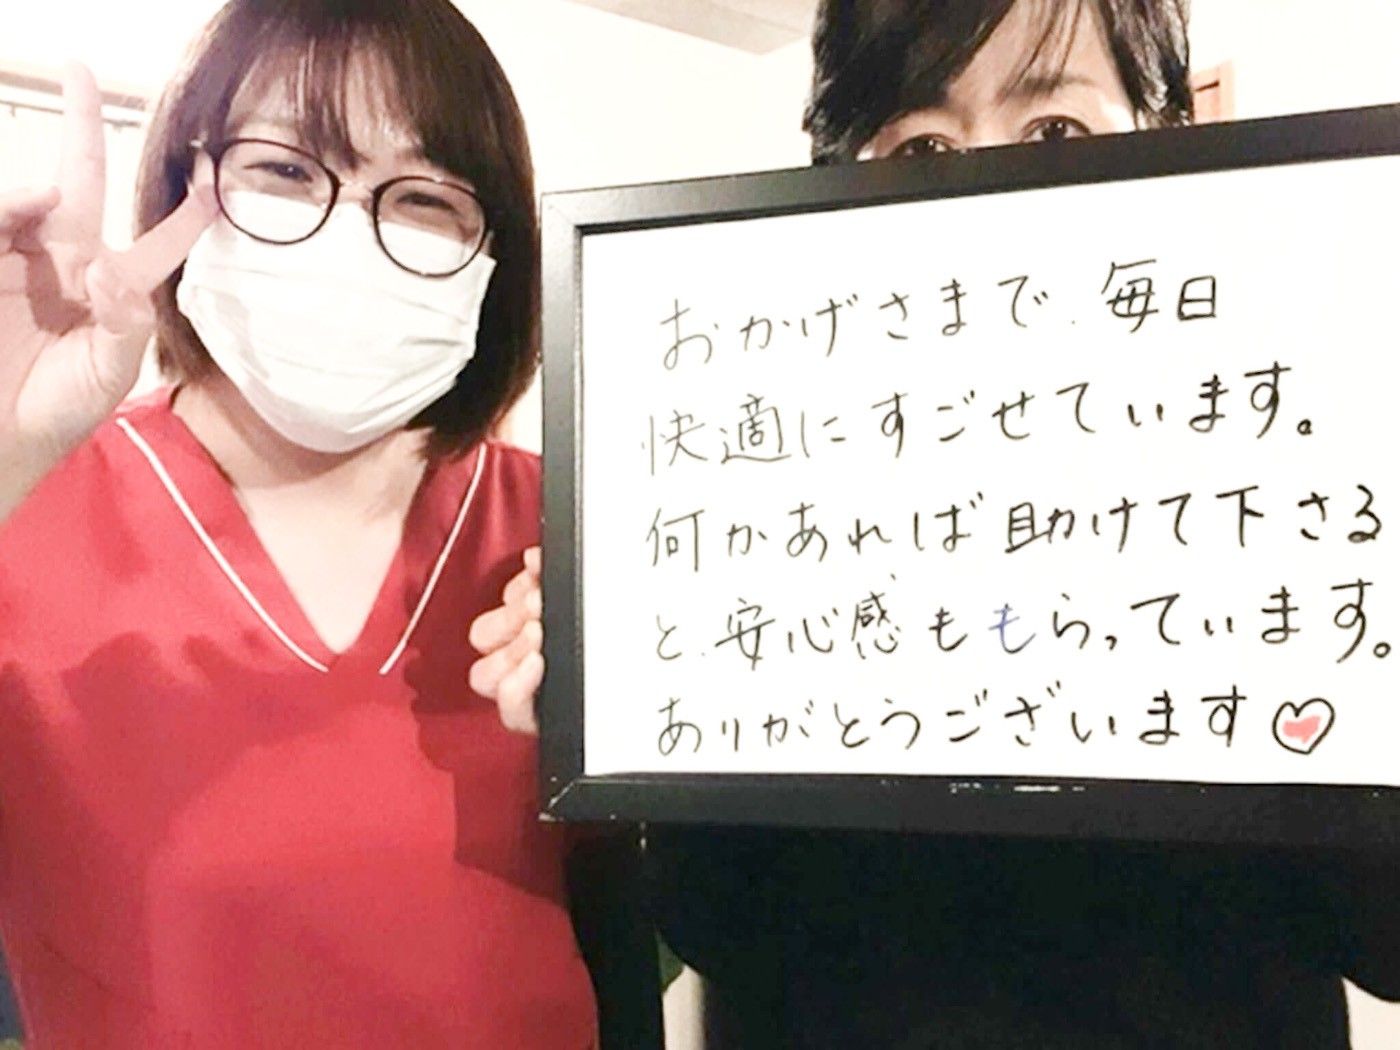 おかげさまで、毎日
快適にすごせています。
何かあれば助けて下さる
と、安心感ももらっています。
ありがとうございます♡